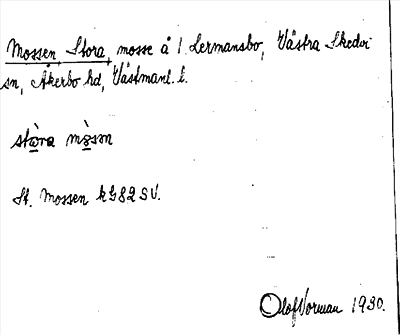 Mossen, Stora, mosse å 1. Lermansbo, Västra Skedvi
sn, Åkerbo hd, Västmanl. l.
stòra mòsən
St. Mossen kG82SV.
Olof Norman 1930.